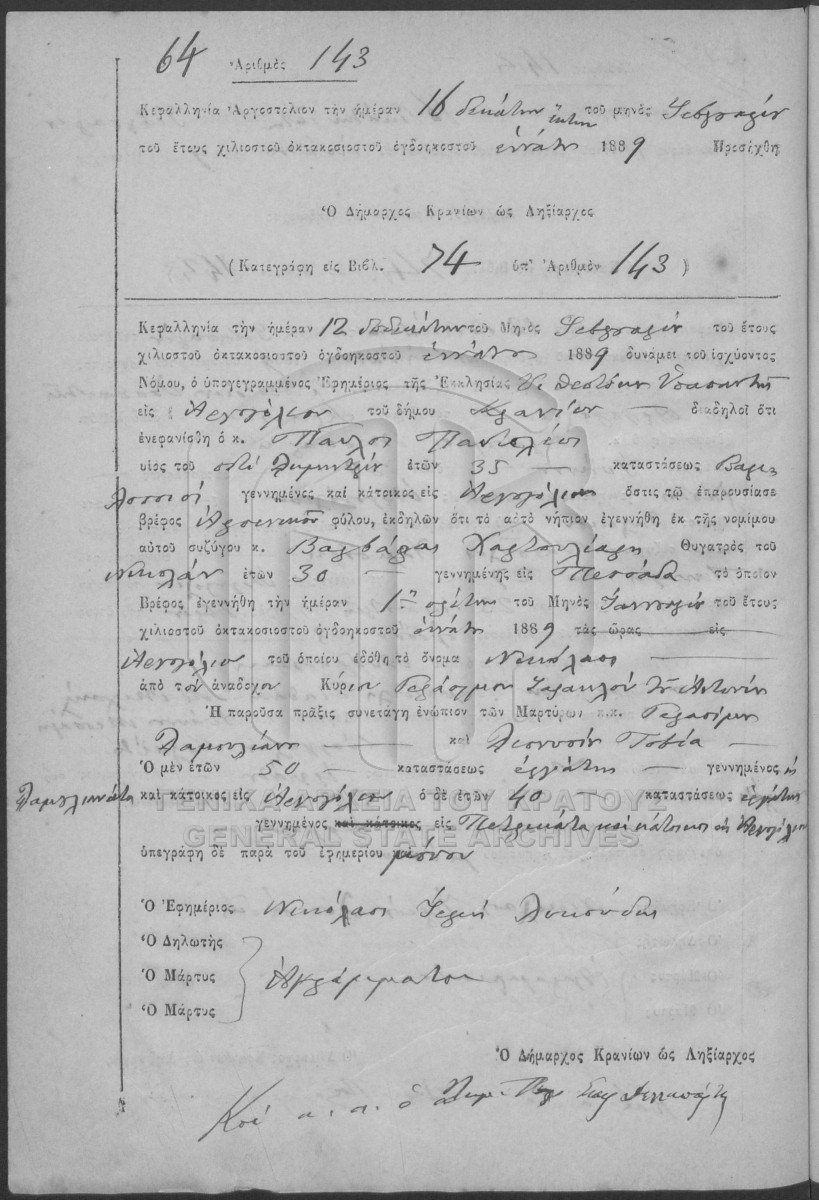 64 Ἀριθμὸς 143
Κεφαλληνία Ἀργοστόλιον τὴν ἡμέραν 16 δεκάτην ἕκτην τοῦ μηνὸς Φεβρουαρίου
τοῦ ἔτους χιλιοστοῦ ὀκτακοσιοστοῦ ὀγδοηκοστοῦ ἐννάτου 1889 Προσήχθη
Ὁ Δήμαρχος Κρανίων ὡς Ληξίαρχος
(Κατεγράφη εἰς Βιβλ. 74 ὑπ' Ἀριθμὸν 143)
Κεφαλληνία τὴν ἡμέραν 12 δωδεκάτην τοῦ Μηνὸς Φεβρουαρίου τοῦ ἔτους
χιλιοστοῦ ὀκτακοσιοστοῦ ὀγδοηκοστοῦ ἐννάτου 1889 δυνάμει τοῦ ἰσχύοντος
Νόμου, ὁ ὑπογεγραμμένος Ἐφημέριος τῆς Ἐκκλησίας Ὑ. Θεοτόκου
εἰς Ἀργοστόλιον τοῦ δήμου Κρανίων διαδηλοῖ ὅτι
ἐνεφανίσθη ὁ κ. Παῦλος
υἱὸς τοῦ ποτὲ Δημητρίου ἐτῶν 35 καταστάσεως
γεννημένος καὶ κάτοικος εἰς Ἀργοστόλιον ὅστις τῷ ἐπαρουσίασε
βρέφος Ἀρσενικοῦ φύλου, ἐκδηλῶν ὅτι τὸ αὐτὸ νήπιον ἐγεννήθη ἐκ τῆς νομίμου
αὐτοῦ συζύγου κ. Βαρβάρας Χαρτουλιάρη Θυγατρὸς τοῦ
Νικολάου ἐτῶν 30 γεννημένης εἰς Πεσσάδα τὸ ὁποῖον
Βρέφος ἐγεννήθη τὴν ἡμέραν 1ην πρώτην τοῦ Μηνὸς Ἰανουαρίου τοῦ ἔτους
χιλιοστοῦ ὀκτακοσιοστοῦ ὀγδοηκοστοῦ ἐννάτου 1889 τὰς ὥρας εἰς
Ἀργοστόλιον τοῦ ὁποίου ἐδόθη τὸ ὄνομα Νικόλαος
ἀπὸ τὸν ἀνάδοχον Κύριον Γεράσιμον τοῦ Ἀντωνίου
Ἡ παροῦσα πρᾶξις συνετάγη ἐνώπιον τῶν Μαρτύρων κ.κ. Γερασίμου
καὶ Διονυσίου Τοβία
Ὁ μὲν ἐτῶν 50 καταστάσεως ἐργάτης γεννημένος εἰς
καὶ κάτοικος εἰς Ἀργοστόλιον ὁ δὲ ἐτῶν 40 καταστάσεως ἐργάτης
γεννημένος καὶ κάτοικος εἰς Πετρικάτα καὶ κάτοικος εἰς Ἀργοστόλιον
ὑπεγράφη δὲ παρὰ τοῦ ἐφημερίου μόνον
Ὁ Ἐφημέριος Νικόλαος Ἱερεὺς
Ὁ Δηλωτὴς
Ὁ Μάρτυς Ἀγράμματοι
Ὁ Μάρτυς
Ὁ Δήμαρχος Κρανίων ὡς Ληξίαρχος
ΓΕΝΙΚΑ ΑΡΧΕΙΑ ΤΟΥ ΚΡΑΤΟΥΣ
GENERAL STATE ARCHIVES